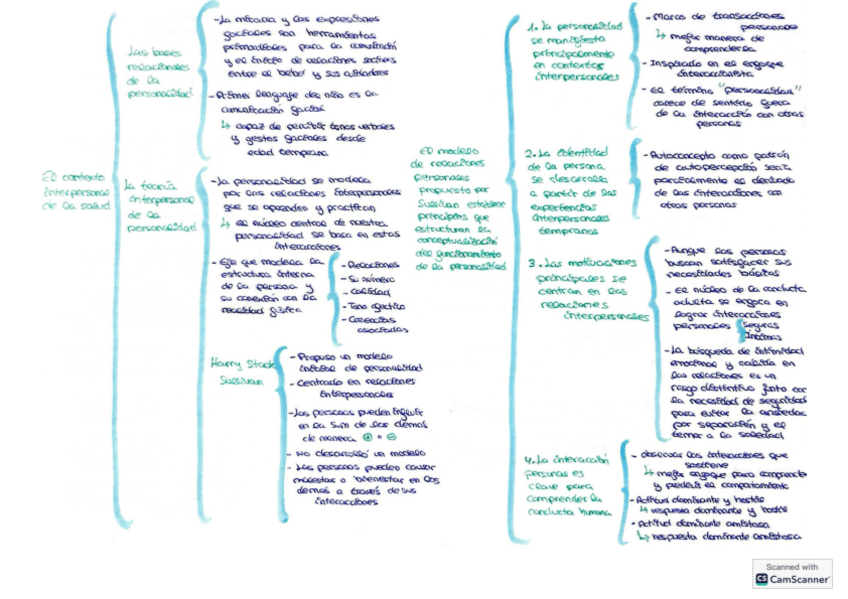 El contexto
interpersonal
de la salud
Las bases
relacionales
de la
personalidad
- La mímica y las expresiones
faciales son herramientas
primordiales para la comunicación
y el inicio de relaciones sociales
entre el bebé y sus cuidadores
- Primer lenguaje del niño es la
comunicación facial
↳ capaz de percibir tonos verbales
y gestos faciales desde
edad temprana
La teoría
interpersonal
de la
personalidad
- La personalidad se modela
por las relaciones interpersonales
que se aprenden y practican
↳ el núcleo central de nuestra
personalidad se basa en estas
interacciones
- Eje que modela la
estructura interna
de la persona y
su conexión con la
realidad física
- Relaciones
- Su número
- Calidad
- Tono afectivo
- Creencias
asociadas
Harry Stack
Sullivan
- Propuso un modelo
inicial de personalidad
- Centrado en relaciones
interpersonales
- Las personas pueden influir
en la de los demás
de manera ⊕ o ⊖
- No desarrolló un modelo
- Las personas pueden causar
malestar o bienestar en los
demás a través de sus
interacciones
El modelo
de relaciones
personales
propuesto por
Sullivan establece
principios que
estructuran la
conceptualización
del funcionamiento
de la personalidad
1. La personalidad
se manifiesta
principalmente
en contextos
interpersonales
- Marco de transacciones
personales
↳ mejor manera de
comprenderla
- Inspirado en el enfoque
interaccionista
- El término "personalidad"
carece de sentido fuera
de la interacción con otras
personas
2. La identidad
de la persona
se desarrolla
a partir de las
experiencias
interpersonales
tempranas
- Autoconcepto como patrón
de autopercepción sería
parcialmente el derivado
de las interacciones con
otras personas
3. Las motivaciones
principales se
centran en las
relaciones
interpersonales
- Aunque las personas
buscan satisfacer sus
necesidades básicas
- El núcleo de la conducta
adulta se enfoca en
lograr interacciones
personales
Seguras
Íntimas
- La búsqueda de intimidad
emocional y calidez en
las relaciones es un
rasgo distintivo junto con
la necesidad de seguridad
para evitar la ansiedad
por separación y el
temor a la soledad
4. La interacción
personal es
clave para
comprender la
conducta humana
- Observar las interacciones que
sostiene
↳ mejor enfoque para comprender
y predecir el comportamiento
- Actitud dominante y hostil
↳ respuesta dominante y hostil
- Actitud dominante amistosa
↳ respuesta dominante amistosa
Scanned with
CS CamScanner